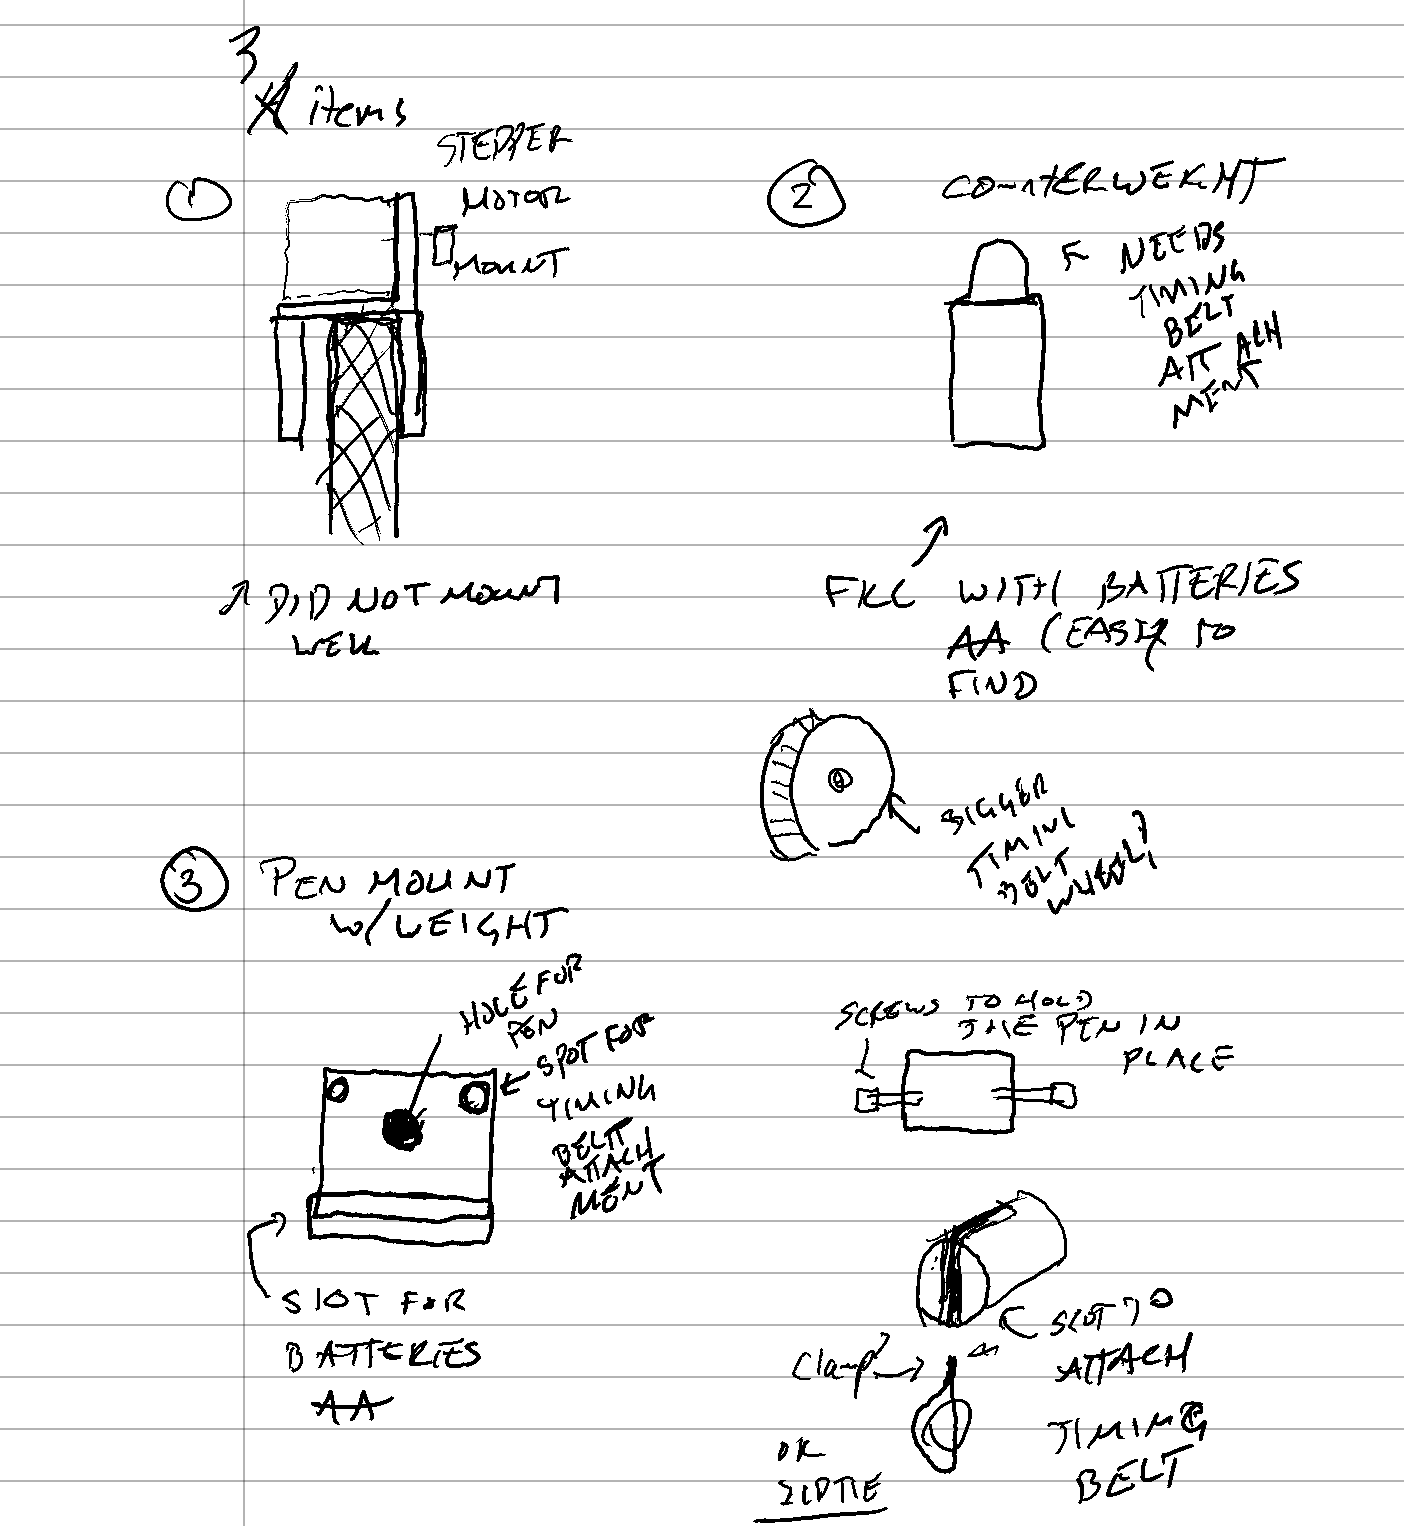 3
items
①
STEPPER
MOTOR
MOUNT
DID NOT MOUNT
WELL
②
COUNTERWEIGHT
NEEDS
TIMING
BELT
ATTACH
MENT
FILL WITH BATTERIES
AA (EASIER TO
FIND
BIGGER
TIMING
BELT
WHEEL?
③
PEN MOUNT
W/ WEIGHT
HOLE FOR
PEN
SPOT FOR
TIMING
BELT
ATTACH
MENT
SLOT FOR
BATTERIES
AA
SCREWS TO HOLD
THE PEN IN
PLACE
SLOT TO
ATTACH
TIMING
BELT
Clamp?
OR
ZIPTIE